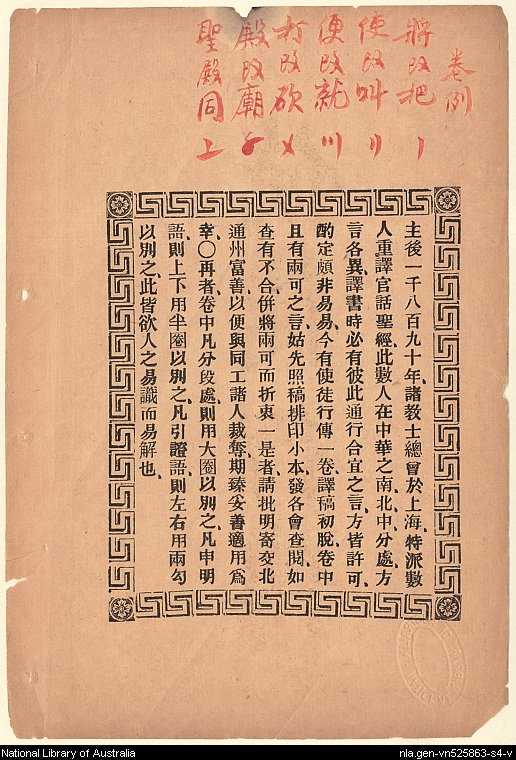 卷例
將改把 〡
使改叫 〢
便改就 〣
打改砍 〤
殿改廟 〥
聖殿同上
主後一千八百九十年、諸教士總會於上海、特派數
人、重譯官話聖經、此數人在中華之南北中分處、方
言各異、譯書時必有彼此通行合宜之言、方皆許可、
酌定頗非易易、今有使徒行傳一卷、譯稿初脫、卷中
且有兩可之言、姑先照稿排印小本、發各會查閱、如
查有不合、併將兩可而折衷一是者、請批明寄交北
通州富善、以便與同工諸人裁奪、期臻妥善適用爲
幸、〇再者、卷中凡分段處、則用大圈以別之、凡申明
語、則上下用半圈以別之、凡引證語、則左右用兩勾
以別之、此皆欲人之易識而易解也、
National Library of Australia
nla.gen-vn525863-s4-v